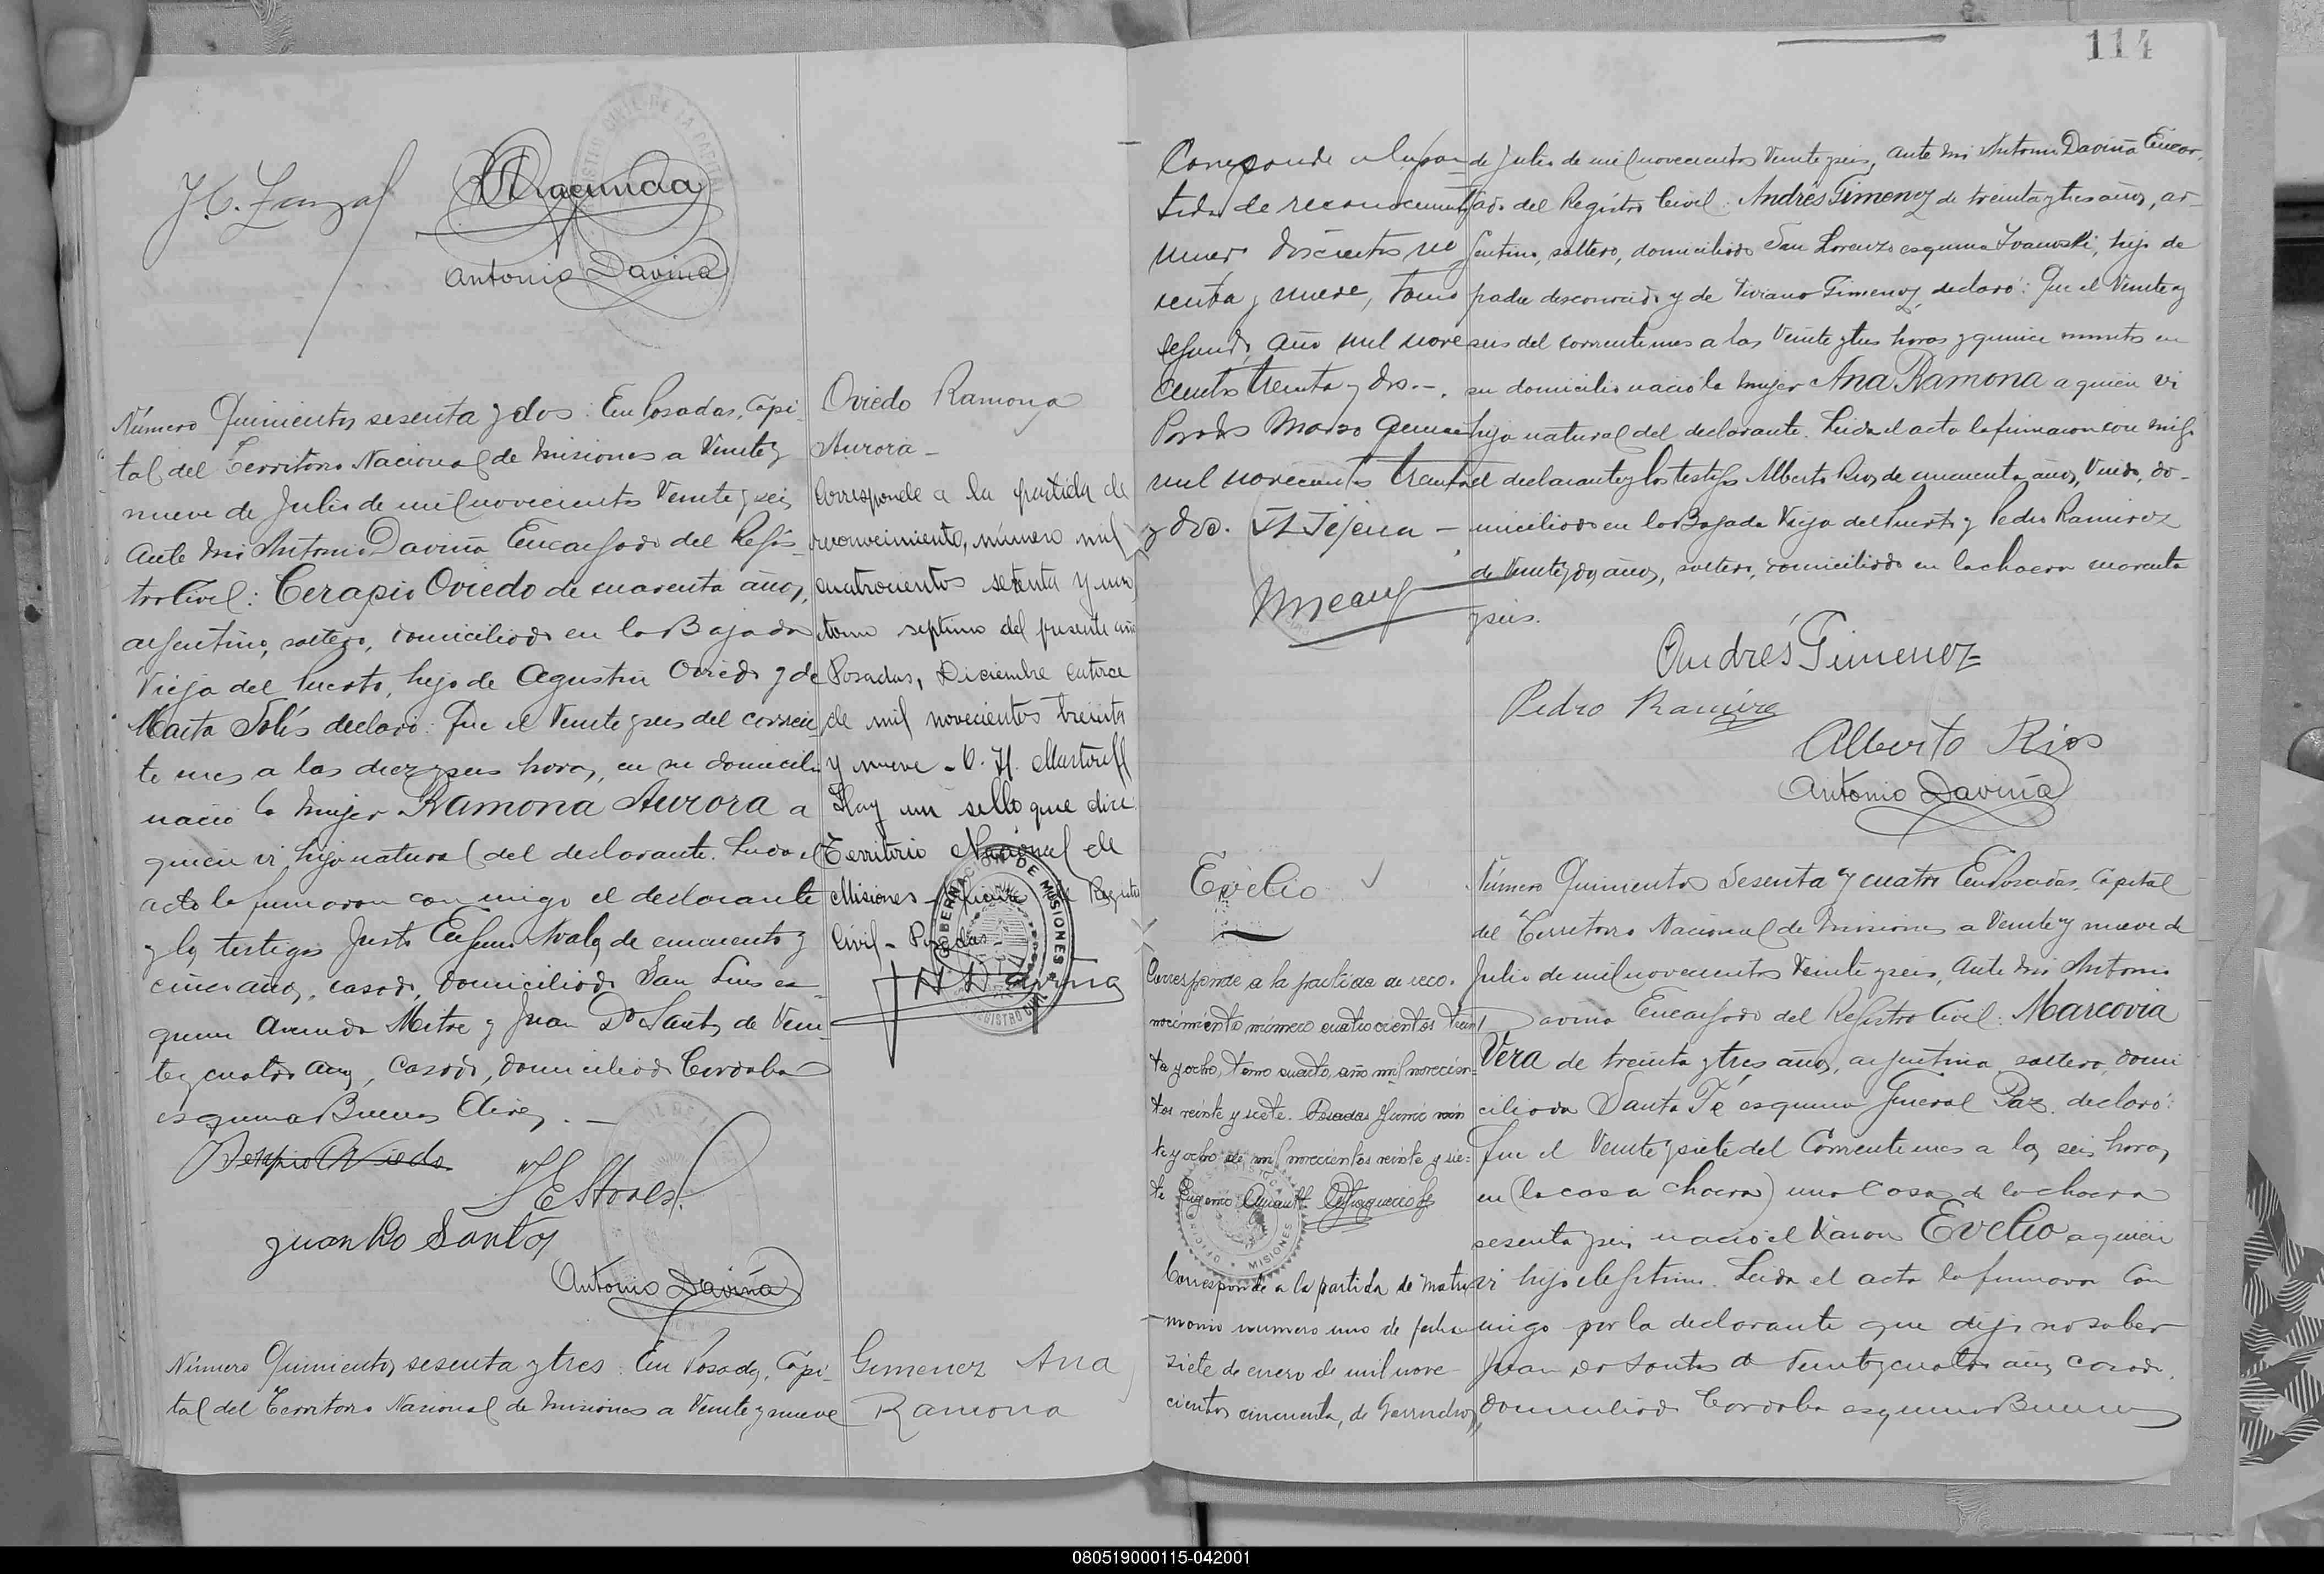 114
Antonio Daviña
Número Quinientos sesenta y dos: En Posadas, Capi-
tal del Territorio Nacional de Misiones a Veinte y
nueve de Julio de mil novecientos Veinte y seis,
Ante mi Antonio Daviña Encargado del Regis-
tro Civil: Cerapio Oviedo de cuarenta años,
argentino, soltero, domiciliado en la Bajada
Vieja del Puerto, hijo de Agustin Oviedo y de
Marta Solís declaró: Que el Veinte y seis del corrien
te mes a las diez y seis horas, en su domicilio
nació la mujer Ramona Aurora a
quien vi hija natural del declarante. Leida el
acta la firmaron con migo el declarante
y los testigos Justo de cincuenta y
cinco años, casado, domiciliado San Luis es-
quina Avenida Mitre y Juan Do Santos de Vein-
te y cuatro años, casado, domiciliado Cordoba
esquina Buenos Aires. —
Juan Do Santos
Antonio Daviña
Número Quinientos sesenta y tres: En Posadas, Capi-
tal del Territorio Nacional de Misiones a Veinte y nueve
Oviedo Ramona
Aurora -
Corresponde a la partida de
reconocimiento, número mil
cuatrocientos setenta y uno,
tomo septimo del presente año
Posadas, Diciembre catorce
de mil novecientos treinta
y nueve -
Hay un sello que dice:
Territorio Nacional de
Misiones - Registro
Civil - Posadas -
GOBERNACION DE MISIONES
REGISTRO CIVIL
Gimenez Ana
Ramona
Corresponde a la par
tida de reconocimiento
numero doscientos no
venta y nueve, Tomo
segundo, año mil nove
cientos treinta y dos.-
Posadas Marzo quince
mil novecientos treinta
y dos.
de Julio de mil novecientos Veinte y seis, Ante mi Antonio Daviña Encar-
gado del Registro Civil: Andrés Gimenez de treinta y tres años, ar-
gentino, soltero, domiciliado San Lorenzo esquina Ivanoski, hijo de
padre desconocido y de Viviana Gimenez, declaró: Que el Veinte y
seis del corriente mes a las Veinte y tres horas y quince minutos en
su domicilio nació la mujer Ana Ramona a quien vi
hija natural del declarante. Leida el acta la firmaron con migo
el declarante y los testigos Alberto Rios de cincuenta años, Viudo, do-
miciliado en la Bajada Vieja del Puerto y Pedro Ramirez
de Veinte y dos años, soltero, domiciliado en la chacra cuarenta
y seis.
Andrés Gimenez
Pedro Ramirez
Alberto Rios
Antonio Daviña
Evelio
Corresponde a la partida de reco-
nocimiento número cuatrocientos trein
ta y ocho, tomo cuarto, año mil novecien-
tos veinte y siete. Posadas Junio vein
te y ocho de mil novecientos veinte y sie-
te
MISIONES
Corresponde a la partida de matri
monio numero uno de fecha
siete de enero de mil nove-
cientos cincuenta, de
Número Quinientos Sesenta y cuatro En Posadas, Capital
del Territorio Nacional de Misiones a Veinte y nueve de
Julio de mil novecientos Veinte y seis, Ante mi Antonio
Daviña Encargado del Registro Civil: Marcovia
Vera de treinta y tres años, argentina, soltera, domi
ciliada Santa Fé esquina General Paz, declaró:
Que el Veinte y siete del Corriente mes a las seis horas,
en (la casa chacra) una Casa de la chacra
sesenta y seis nació el Varon Evelio a quien
vi hijo ilegitimo. Leida el acta la firmaron Con
migo por la declarante que dijo no saber
Juan Do Santos de Veinte y cuatro años, Casado,
domiciliado Cordoba esquina Buenos
080519000115-042001